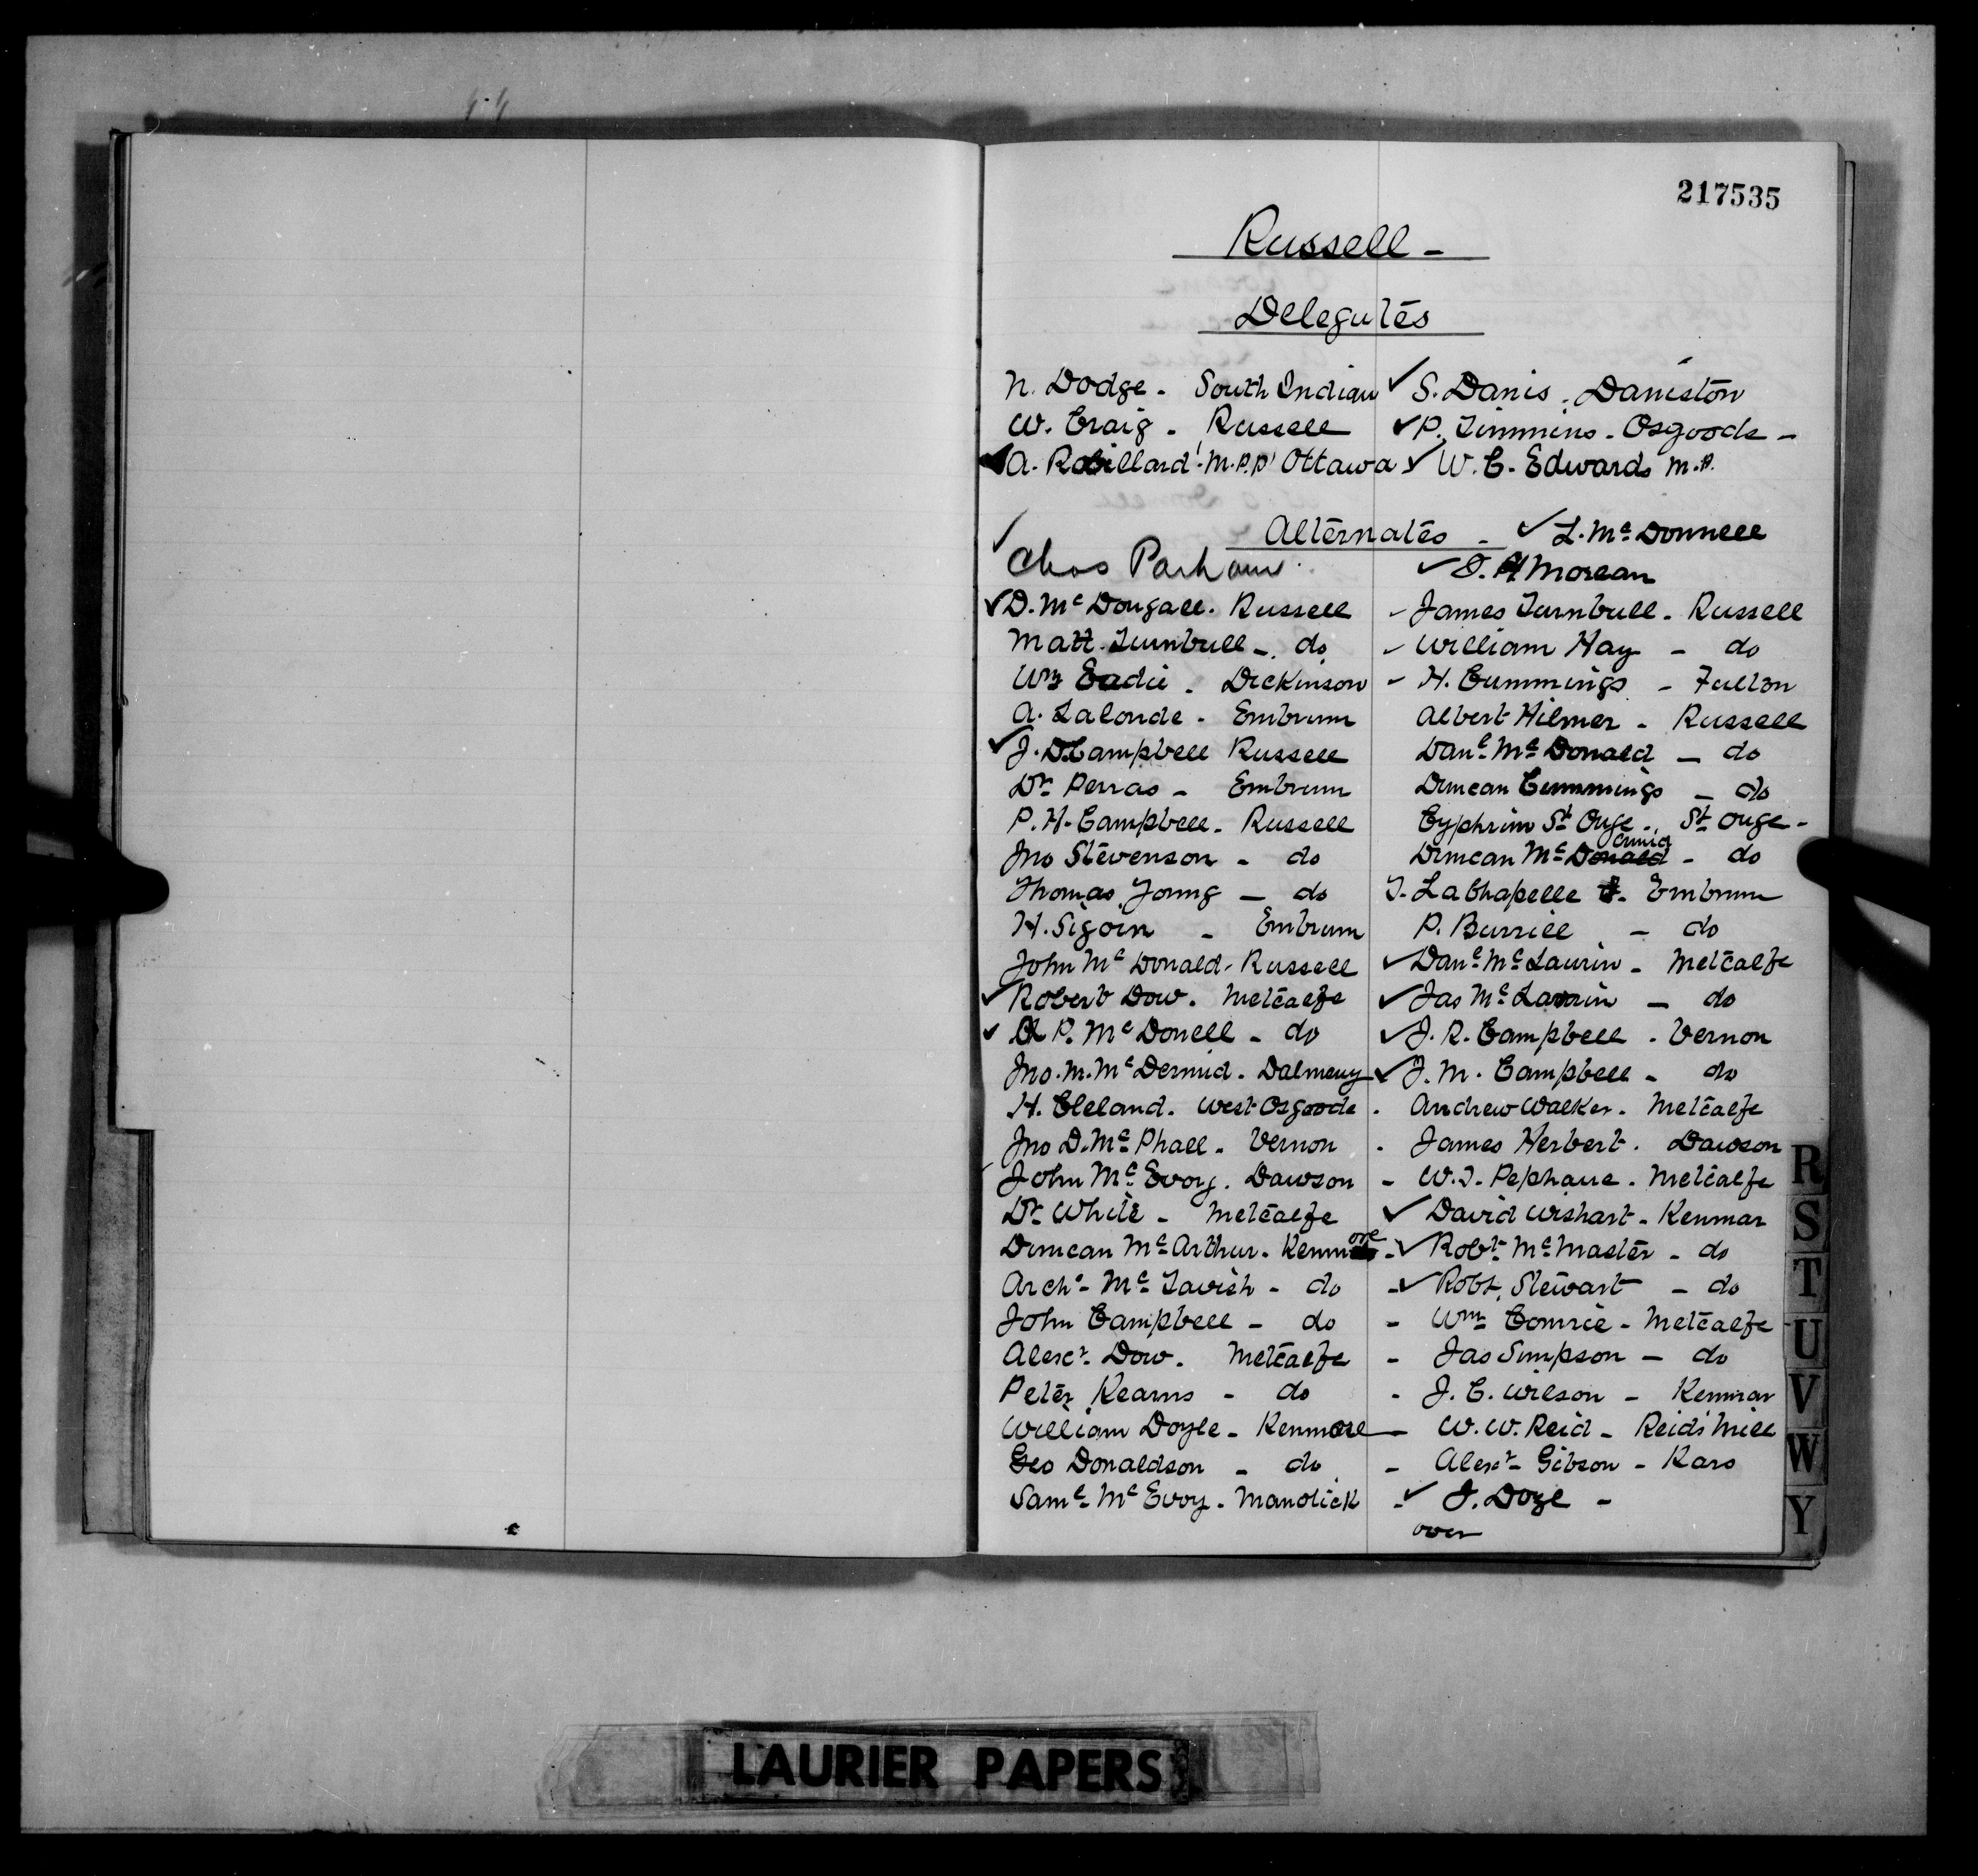 217535
Russell -
Delegates
N. Dodge - South Indian ✓ S. Danis. Daniston
W. Craig - Russell ✓ P. Timmins - Osgoode -
✓ A. Robillard M.P.P. Ottawa ✓ W. C. Edwards M.P.
Alternates - ✓ L. McDonnell
✓ Chas Parham ✓ J. H Morean
✓ D. McDougall. Russell - James Turnbull - Russell
Matt Turnbull - do - William Hay - do
Wm Eadie - Dickinson - H. Cummings - Fulton
A. Lalonde - Embrum Albert Hilmer - Russell
✓ J. D. Campbell Russell Danl McDonald - do
Dr Perras - Embrum Duncan Cummings - do
P. H. Campbell - Russell Cyphrim St Onge - St Onge -
Jno Stevenson - do Duncan McDonald ormid - do
Thomas Young - do T. LaChapelle - Embrum
H. Sigoin - Embrum P. Burriel - do
John McDonald - Russell ✓ Danl McLaurin - Metcalfe
✓ Robert Dow. Metcalfe ✓ Jas McLaurin - do
✓ A P. McDonell - do ✓ J. R. Campbell - Vernon
Jno. M. McDermid. Dalmeny ✓ J. M. Campbell - do
H. Cleland. West Osgoode - Andrew Walker. Metcalfe
Jno D. McPhall - Vernon - James Herbert. Dawson
John McEvoy. Dawson - W. J. Pephane. Metcalfe
Dr White - Metcalfe ✓ David Wishart - Kenmar
Duncan McArthur - Kenmore - ✓ Robt McMaster - do
Archd McTavish - do - ✓ Robt. Stewart - do
John Campbell - do - Wm Comrie - Metcalfe
Alexr Dow. Metcalfe - Jas Simpson - do
Peter Kearns - do - J. C. Wilson - Kenmar
William Doyle - Kenmore - W. W. Reid - Reids Mill
Geo Donaldson - do - Alexr Gibson - Kars
Saml McEvoy - Manotick - ✓ J. Doyl -
over
R
S
T
U
V
W
Y
LAURIER PAPERS